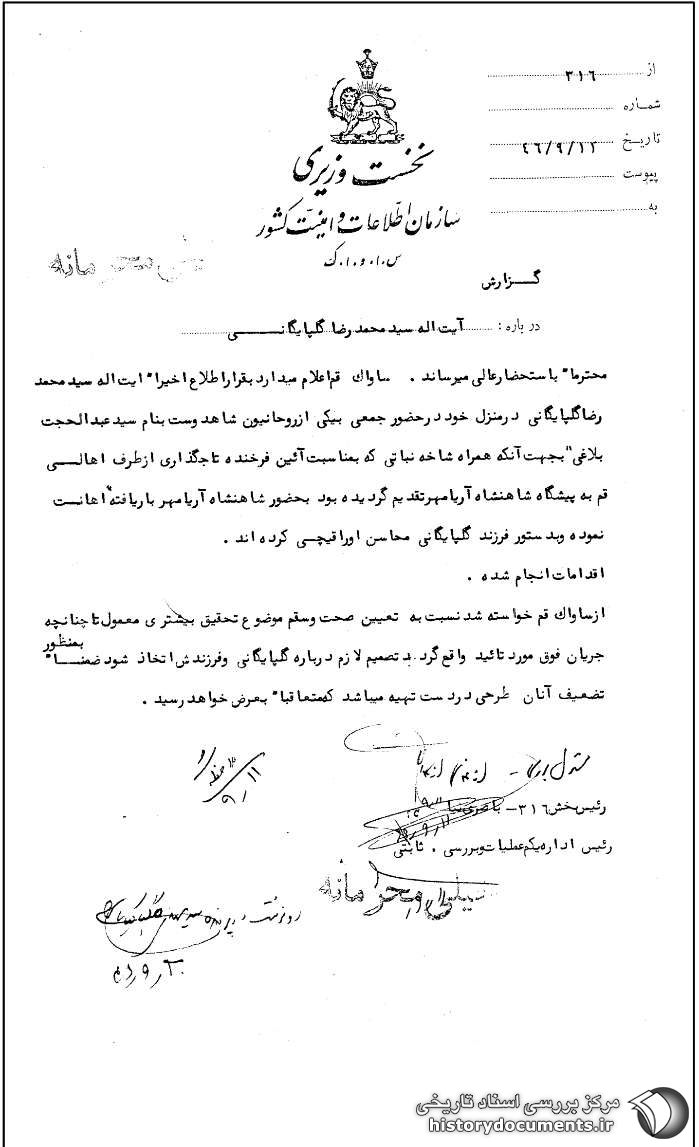 از ۳۱۶
شماره
تاریخ ۴۶/۹/۱۲
پیوست
به
نخست وزیری
سازمان اطلاعات و امنیت کشور
س.ا.و.ا.ک
خیلی محرمانه
گزارش
درباره : آیت اله سید محمد رضا گلپایگانی
محترما" باستحضارعالی میرساند . ساواک قم اعلام میدارد بقرار اطلاع اخیرا" ایت اله سید محمد
رضا گلپایگانی در منزل خود در حضور جمعی بیکی از روحانیون شاهدوست بنام سید عبدالحجت
بلاغی "بجهت آنکه همراه شاخه نباتی که بمناسبت آئین فرخنده تاجگذاری از طرف اهالی
قم به پیشگاه شاهنشاه آریامهر تقدیم گردیده بود بحضور شاهنشاه آریامهر باریافته" اهانت
نموده وبدستور فرزند گلپایگانی محاسن اوراقیچی کرده اند .
اقدامات انجام شده .
ازساواک قم خواسته شد نسبت به تعیین صحت وسقم موضوع تحقیق بیشتری معمول تا چنانچه
جریان فوق مورد تائید واقع گردد تصمیم لازم درباره گلپایگانی وفرزندش اتخاذ شود ضمنا" بمنظور
تضعیف آنان طرحی دردست تهیه میباشد که متعاقبا" بعرض خواهد رسید .
رئیس بخش ۳۱۶ -
رئیس اداره یکم عملیات وبررسی . ثابتی
خیلی محرمانه
مرکز بررسی اسناد تاریخی
historydocuments.ir